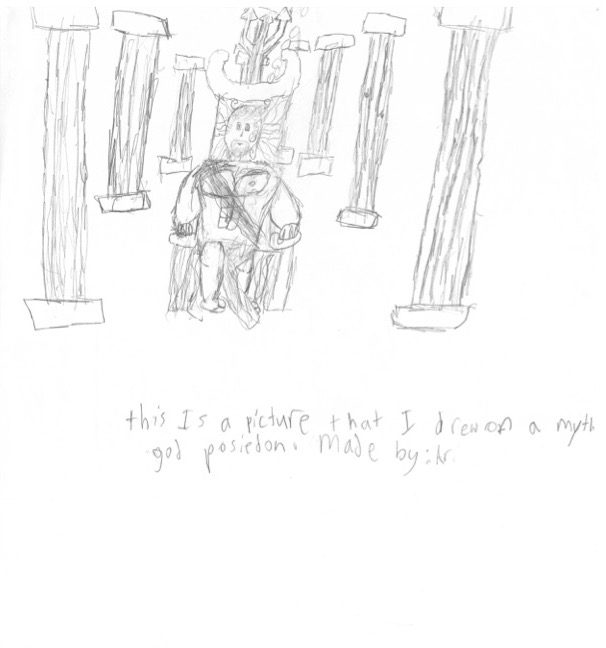 this Is a picture that I drew of a myth
god posiedon. Made by: